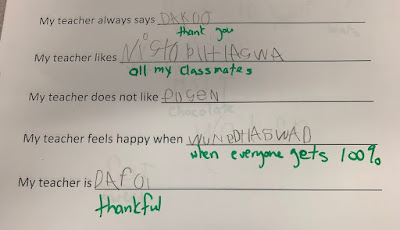 My teacher always says DAKOO
thank you
My teacher likes
all my classmates
My teacher does not like PUGEN
chocolate
My teacher feels happy when WUNEDHAGWAD
when everyone gets 100%
My teacher is DAFOI
thankful